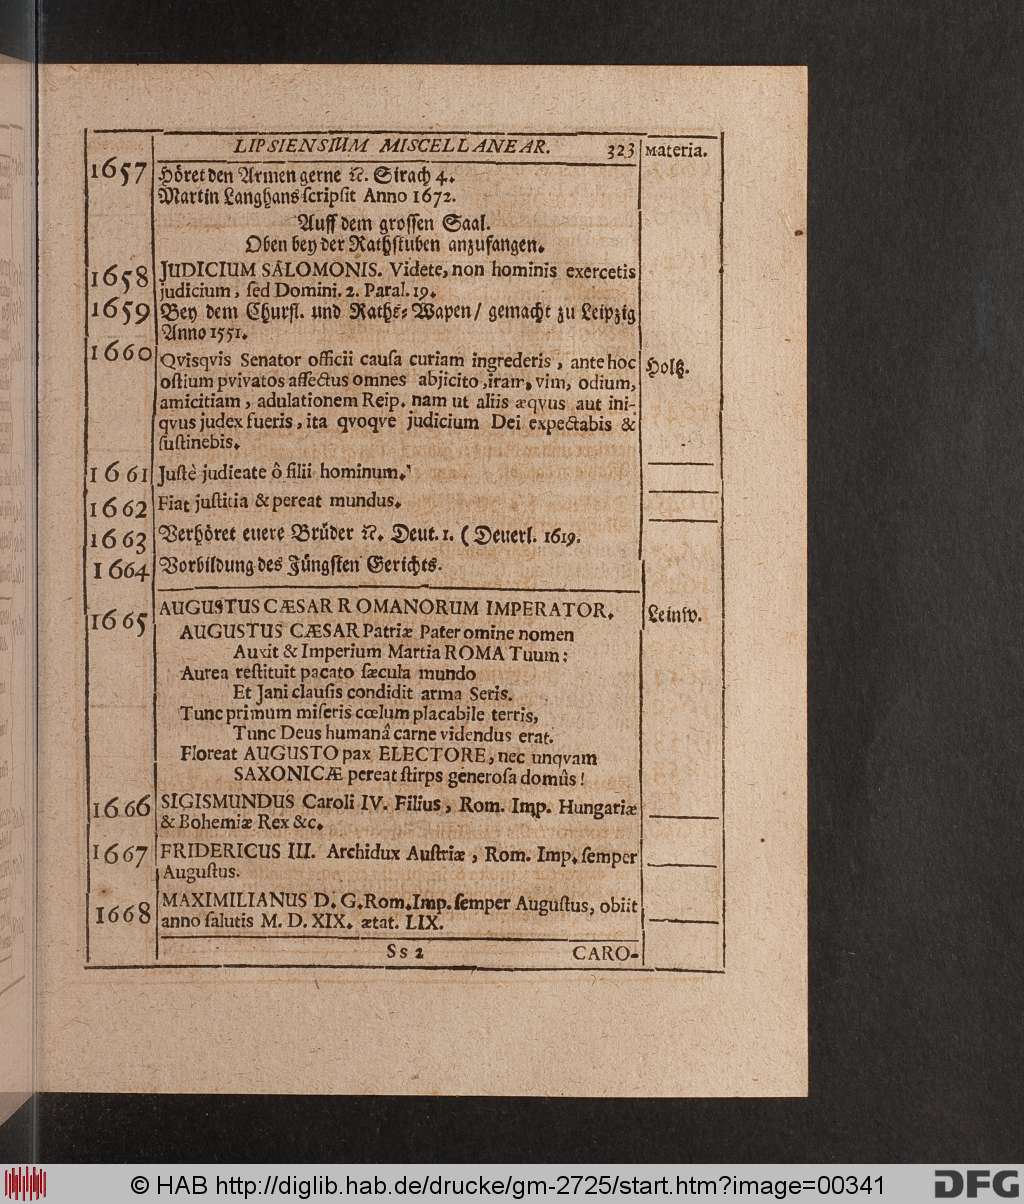 LIPSIENSIUM MISCELLANEAR. 323 Materia.
1657 Höret den Armen gerne ꝛc. Sirach 4.
Martin Langhans ſcripſit Anno 1672.
Auff dem groſſen Saal.
Oben bey der Rathſtuben anzufangen.
1658 JUDICIUM SALOMONIS. Videte, non hominis exercetis
judicium, ſed Domini. 2. Paral. 19.
1659 Bey dem Churfl. und Raths-Wapen / gemacht zu Leipzig
Anno 1551.
1660 Qviſqvis Senator officii cauſa curiam ingrederis, ante hoc Holtz.
oſtium pvivatos affectus omnes abjicito, iram, vim, odium,
amicitiam, adulationem Reip. nam ut aliis æqvus aut ini-
qvus judex fueris, ita qvoqve judicium Dei expectabis &
ſuſtinebis.
1661 Juſtè judieate ô filii hominum.
1662 Fiat juſtitia & pereat mundus.
1663 Verhöret euere Brüder ꝛc. Deut. 1. ( Deuerl. 1619.
1664 Vorbildung des Jüngſten Gerichts.
1665 AUGUSTUS CÆSAR ROMANORUM IMPERATOR. Leinw.
AUGUSTUS CÆSAR Patriæ Pater omine nomen
Auxit & Imperium Martia ROMA Tuum:
Aurea reſtituit pacato ſæcula mundo
Et Jani clauſis condidit arma Seris.
Tunc primum miſeris cœlum placabile terris,
Tunc Deus humanâ carne videndus erat.
Floreat AUGUSTO pax ELECTORE, nec unqvam
SAXONICÆ pereat ſtirps generoſa domûs!
1666 SIGISMUNDUS Caroli IV. Filius, Rom. Imp. Hungariæ
& Bohemiæ Rex &c.
1667 FRIDERICUS III. Archidux Auſtriæ, Rom. Imp. ſemper
Auguſtus.
1668 MAXIMILIANUS D. G. Rom. Imp. ſemper Auguſtus, obiit
anno ſalutis M. D. XIX. ætat. LIX.
Ss 2 CARO-
© HAB http://diglib.hab.de/drucke/gm-2725/start.htm?image=00341
DFG